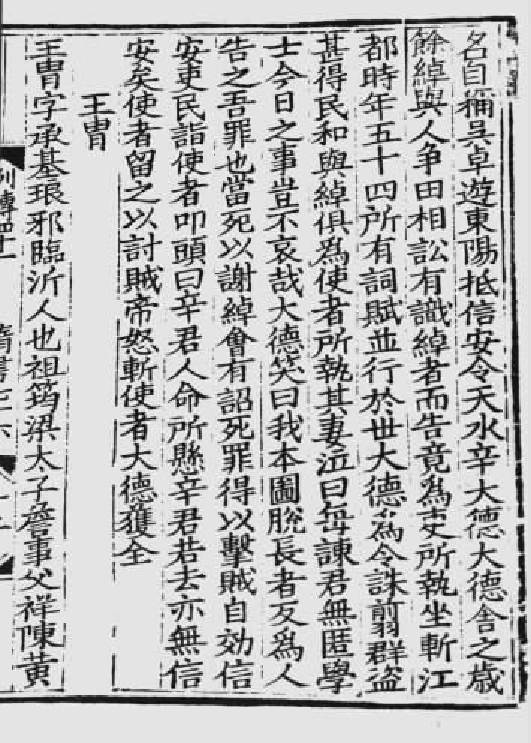 名自稱吳卓遊東陽抵信安令天水辛大德大德舍之歲
餘綽與人爭田相訟有識綽者而告竟爲吏所執坐斬江
都時年五十四所有詞賦並行於世大德爲令誅翦群盜
甚得民和與綽俱爲使者所執其妻泣曰每諫君無匿學
士今日之事豈不哀哉大德笑曰我本圖脫長者反爲人
告之吾罪也當死以謝綽會有詔死罪得以擊賊自効信
安吏民詣使者叩頭曰辛君人命所懸辛君若去亦無信
安矣使者留之以討賊帝怒斬使者大德獲全
王胄
王胄字承基琅邪臨沂人也祖筠梁太子詹事父祥陳黃
列傳四十一